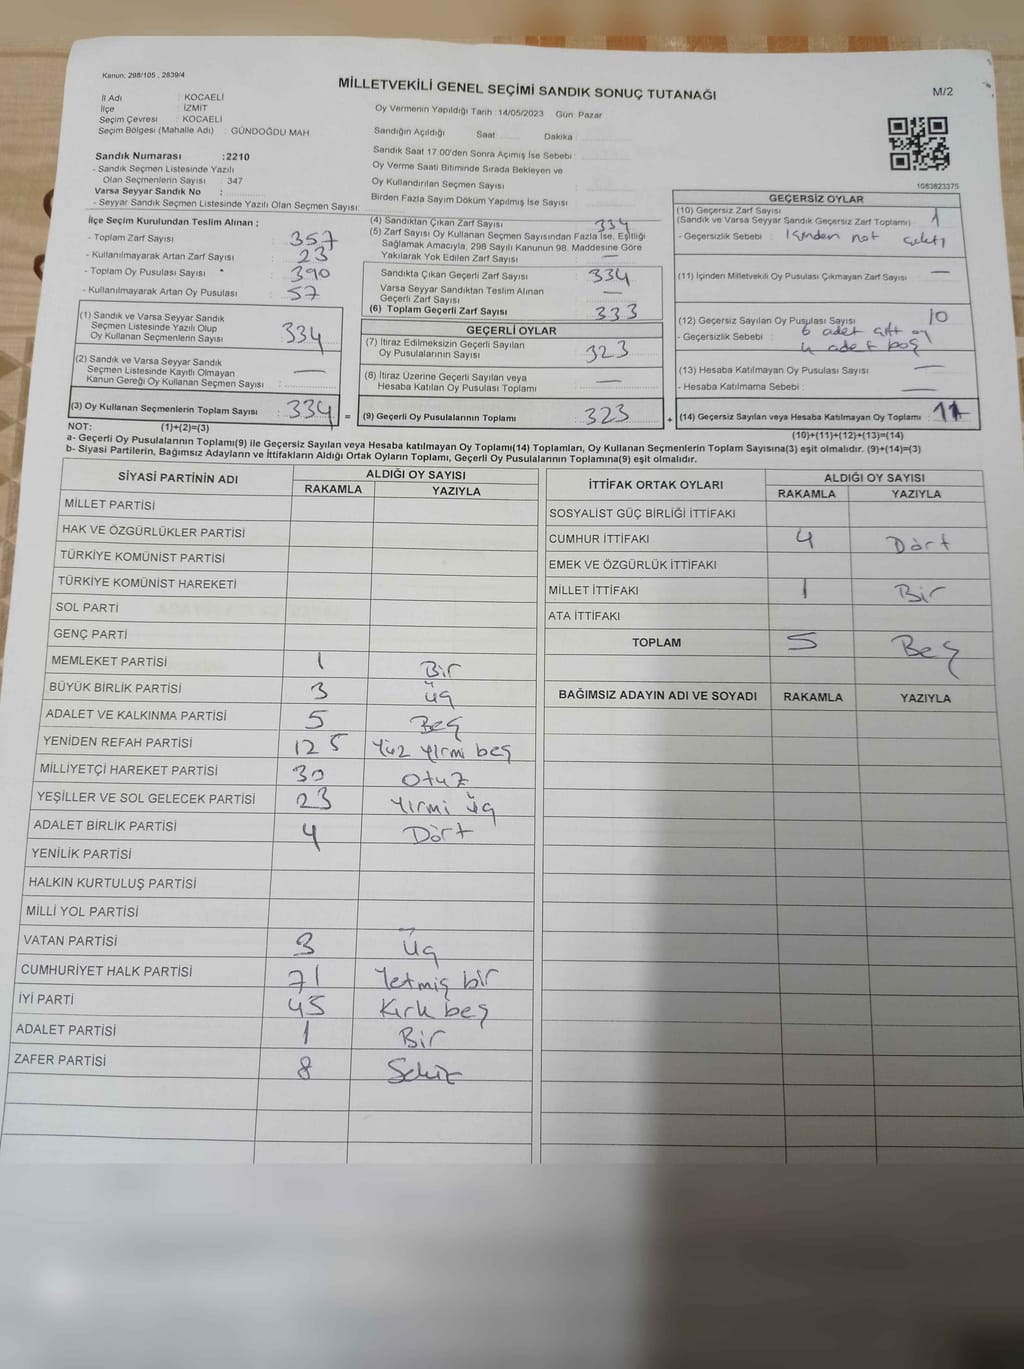 Kanun: 298/105 , 2839/4
MİLLETVEKİLİ GENEL SEÇİMİ SANDIK SONUÇ TUTANAĞI
M/2
İl Adı : KOCAELİ
İlçe : İZMİT
Seçim Çevresi : KOCAELİ
Seçim Bölgesi (Mahalle Adı) : GÜNDOĞDU MAH
Sandık Numarası :2210
- Sandık Seçmen Listesinde Yazılı
Olan Seçmenlerin Sayısı : 347
Varsa Seyyar Sandık No :
- Seyyar Sandık Seçmen Listesinde Yazılı Olan Seçmen Sayısı:
Oy Vermenin Yapıldığı Tarih :14/05/2023 Gün: Pazar
Sandığın Açıldığı Saat Dakika
Sandık Saat 17:00'den Sonra Açımış İse Sebebi :
Oy Verme Saati Bitiminde Sırada Bekleyen ve
Oy Kullandırılan Seçmen Sayısı :
Birden Fazla Sayım Döküm Yapılmış İse Sayısı :
1083823375
İlçe Seçim Kurulundan Teslim Alınan ;
- Toplam Zarf Sayısı : 357
- Kullanılmayarak Artan Zarf Sayısı : 23
- Toplam Oy Pusulası Sayısı : 390
- Kullanılmayarak Artan Oy Pusulası : 57
(1) Sandık ve Varsa Seyyar Sandık
Seçmen Listesinde Yazılı Olup
Oy Kullanan Seçmenlerin Sayısı : 334
(2) Sandık ve Varsa Seyyar Sandık
Seçmen Listesinde Kayıtlı Olmayan
Kanun Gereği Oy Kullanan Seçmen Sayısı : —
(3) Oy Kullanan Seçmenlerin Toplam Sayısı : 334 =
(4) Sandıktan Çıkan Zarf Sayısı : 334
(5) Zarf Sayısı Oy Kullanan Seçmen Sayısından Fazla İse, Eşitliği
Sağlamak Amacıyla, 298 Sayılı Kanunun 98. Maddesine Göre
Yakılarak Yok Edilen Zarf Sayısı : —
Sandıkta Çıkan Geçerli Zarf Sayısı : 334
Varsa Seyyar Sandıktan Teslim Alınan
Geçerli Zarf Sayısı : —
(6) Toplam Geçerli Zarf Sayısı : 333
GEÇERLİ OYLAR
(7) İtiraz Edilmeksizin Geçerli Sayılan
Oy Pusulalarının Sayısı : 323
(8) İtiraz Üzerine Geçerli Sayılan veya
Hesaba Katılan Oy Pusulası Toplamı : —
(9) Geçerli Oy Pusulalarının Toplamı : 323 +
GEÇERSİZ OYLAR
(10) Geçersiz Zarf Sayısı
(Sandık ve Varsa Seyyar Sandık Geçersiz Zarf Toplamı) : 1
- Geçersizlik Sebebi : İçinden not çıktı
(11) İçinden Milletvekili Oy Pusulası Çıkmayan Zarf Sayısı : —
(12) Geçersiz Sayılan Oy Pusulası Sayısı : 10
- Geçersizlik Sebebi : 6 adet çift oy
4 adet boş
(13) Hesaba Katılmayan Oy Pusulası Sayısı : —
- Hesaba Katılmama Sebebi : —
(14) Geçersiz Sayılan veya Hesaba Katılmayan Oy Toplamı : 11
NOT: (1)+(2)=(3)
(10)+(11)+(12)+(13)=(14)
a- Geçerli Oy Pusulalarının Toplamı(9) ile Geçersiz Sayılan veya Hesaba katılmayan Oy Toplamı(14) Toplamları, Oy Kullanan Seçmenlerin Toplam Sayısına(3) eşit olmalıdır. (9)+(14)=(3)
b- Siyasi Partilerin, Bağımsız Adayların ve İttifakların Aldığı Ortak Oyların Toplamı, Geçerli Oy Pusulalarının Toplamına(9) eşit olmalıdır.
SİYASİ PARTİNİN ADI ALDIĞI OY SAYISI
RAKAMLA YAZIYLA
MİLLET PARTİSİ
HAK VE ÖZGÜRLÜKLER PARTİSİ
TÜRKİYE KOMÜNİST PARTİSİ
TÜRKİYE KOMÜNİST HAREKETİ
SOL PARTİ
GENÇ PARTİ
MEMLEKET PARTİSİ 1 Bir
BÜYÜK BİRLİK PARTİSİ 3 Üç
ADALET VE KALKINMA PARTİSİ 5 Beş
YENİDEN REFAH PARTİSİ 125 Yüz Yirmi beş
MİLLİYETÇİ HAREKET PARTİSİ 30 Otuz
YEŞİLLER VE SOL GELECEK PARTİSİ 23 Yirmi üç
ADALET BİRLİK PARTİSİ 4 Dört
YENİLİK PARTİSİ
HALKIN KURTULUŞ PARTİSİ
MİLLİ YOL PARTİSİ
VATAN PARTİSİ 3 Üç
CUMHURİYET HALK PARTİSİ 71 Yetmiş bir
İYİ PARTİ 45 Kırk beş
ADALET PARTİSİ 1 Bir
ZAFER PARTİSİ 8 Sekiz
İTTİFAK ORTAK OYLARI ALDIĞI OY SAYISI
RAKAMLA YAZIYLA
SOSYALİST GÜÇ BİRLİĞİ İTTİFAKI
CUMHUR İTTİFAKI 4 Dört
EMEK VE ÖZGÜRLÜK İTTİFAKI
MİLLET İTTİFAKI 1 Bir
ATA İTTİFAKI
TOPLAM 5 Beş
BAĞIMSIZ ADAYIN ADI VE SOYADI RAKAMLA YAZIYLA